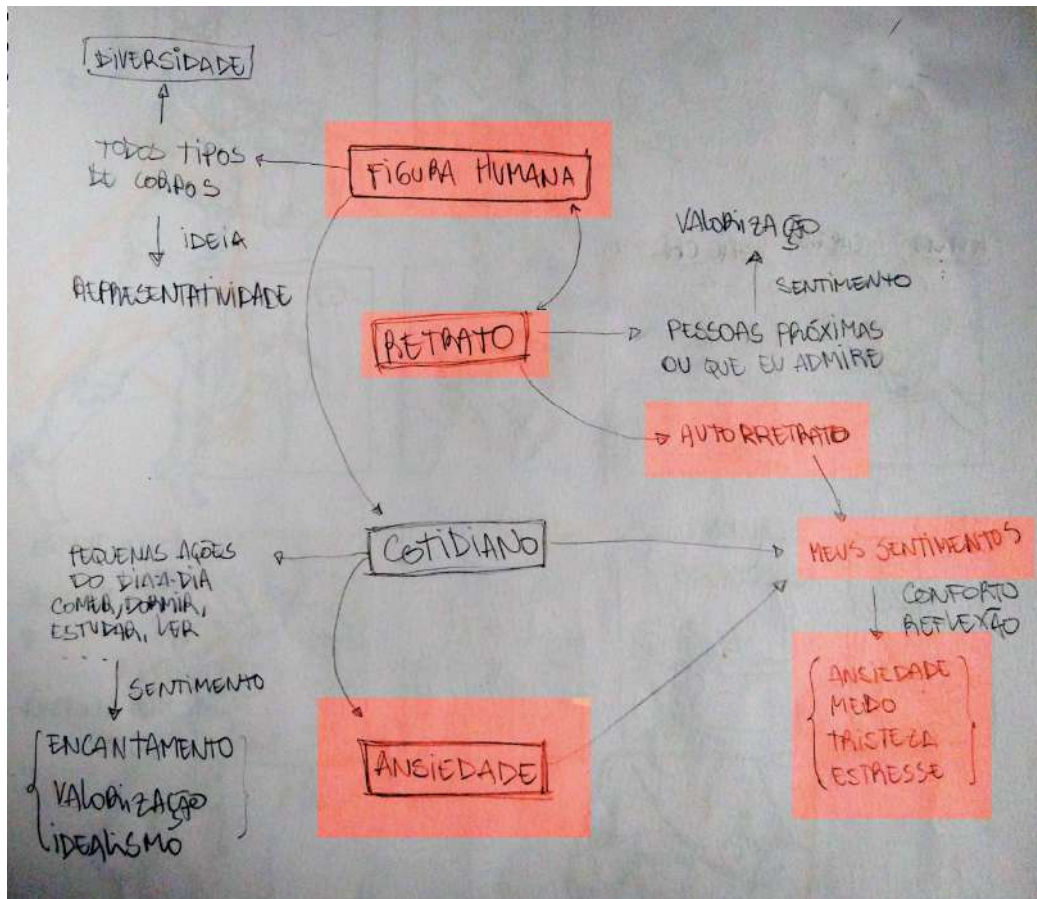 DIVERSIDADE
TODOS TIPOS
DE CORPOS
IDEIA
REPRESENTATIVIDADE
FIGURA HUMANA
VALORIZAÇÃO
SENTIMENTO
RETRATO
PESSOAS PRÓXIMAS
OU QUE EU ADMIRE
AUTORRETRATO
COTIDIANO
PEQUENAS AÇÕES
DO DIA-A-DIA
COMER, DORMIR,
ESTUDAR, LER
...
SENTIMENTO
ENCANTAMENTO
VALORIZAÇÃO
IDEALISMO
MEUS SENTIMENTOS
CONFORTO
REFLEXÃO
ANSIEDADE
MEDO
TRISTEZA
ESTRESSE
ANSIEDADE